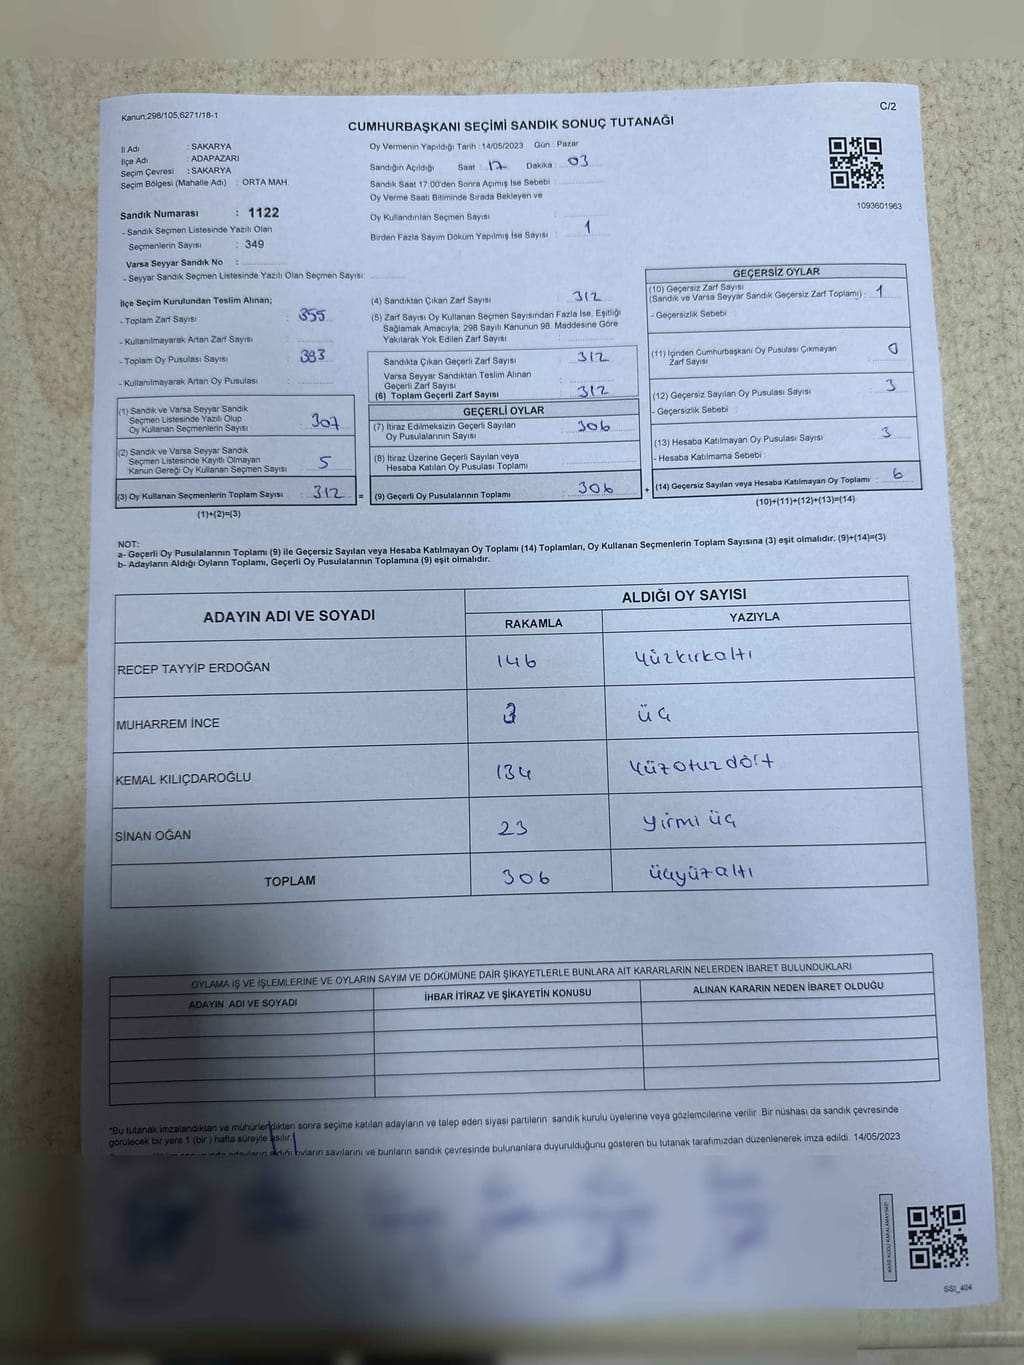 Kanun;298/105;6271/18-1
C/2
CUMHURBAŞKANI SEÇİMİ SANDIK SONUÇ TUTANAĞI
İl Adı : SAKARYA
İlçe Adı : ADAPAZARI
Seçim Çevresi : SAKARYA
Seçim Bölgesi (Mahalle Adı) : ORTA MAH.
Sandık Numarası : 1122
- Sandık Seçmen Listesinde Yazılı Olan
Seçmenlerin Sayısı : 349
Varsa Seyyar Sandık No :
- Seyyar Sandık Seçmen Listesinde Yazılı Olan Seçmen Sayısı:
Oy Vermenin Yapıldığı Tarih : 14/05/2023 Gün : Pazar
Sandığın Açıldığı Saat : 17 Dakika : 03
Sandık Saat 17:00'den Sonra Açımış İse Sebebi :
Oy Verme Saati Bitiminde Sırada Bekleyen ve
Oy Kullandırılan Seçmen Sayısı :
Birden Fazla Sayım Döküm Yapılmış İse Sayısı : 1
1093601963
İlçe Seçim Kurulundan Teslim Alınan;
- Toplam Zarf Sayısı : 355
- Kullanılmayarak Artan Zarf Sayısı :
- Toplam Oy Pusulası Sayısı : 383
- Kullanılmayarak Artan Oy Pusulası :
(1) Sandık ve Varsa Seyyar Sandık
Seçmen Listesinde Yazılı Olup
Oy Kullanan Seçmenlerin Sayısı : 307
(2) Sandık ve Varsa Seyyar Sandık
Seçmen Listesinde Kayıtlı Olmayan
Kanun Gereği Oy Kullanan Seçmen Sayısı : 5
(3) Oy Kullanan Seçmenlerin Toplam Sayısı : 312 =
(1)+(2)=(3)
(4) Sandıktan Çıkan Zarf Sayısı : 312
(5) Zarf Sayısı Oy Kullanan Seçmen Sayısından Fazla İse, Eşitliği
Sağlamak Amacıyla; 298 Sayılı Kanunun 98. Maddesine Göre
Yakılarak Yok Edilen Zarf Sayısı :
Sandıkta Çıkan Geçerli Zarf Sayısı : 312
Varsa Seyyar Sandıktan Teslim Alınan
Geçerli Zarf Sayısı :
(6) Toplam Geçerli Zarf Sayısı : 312
GEÇERLİ OYLAR
(7) İtiraz Edilmeksizin Geçerli Sayılan
Oy Pusulalarının Sayısı : 306
(8) İtiraz Üzerine Geçerli Sayılan veya
Hesaba Katılan Oy Pusulası Toplamı :
(9) Geçerli Oy Pusulalarının Toplamı : 306 +
GEÇERSİZ OYLAR
(10) Geçersiz Zarf Sayısı
(Sandık ve Varsa Seyyar Sandık Geçersiz Zarf Toplamı) : 1
- Geçersizlik Sebebi :
(11) İçinden Cumhurbaşkanı Oy Pusulası Çıkmayan
Zarf Sayısı : 0
(12) Geçersiz Sayılan Oy Pusulası Sayısı : 3
- Geçersizlik Sebebi :
(13) Hesaba Katılmayan Oy Pusulası Sayısı : 3
- Hesaba Katılmama Sebebi :
(14) Geçersiz Sayılan veya Hesaba Katılmayan Oy Toplamı : 6
(10)+(11)+(12)+(13)=(14)
NOT:
a- Geçerli Oy Pusulalarının Toplamı (9) ile Geçersiz Sayılan veya Hesaba Katılmayan Oy Toplamı (14) Toplamları, Oy Kullanan Seçmenlerin Toplam Sayısına (3) eşit olmalıdır. (9)+(14)=(3)
b- Adayların Aldığı Oyların Toplamı, Geçerli Oy Pusulalarının Toplamına (9) eşit olmalıdır.
ADAYIN ADI VE SOYADI ALDIĞI OY SAYISI
RAKAMLA YAZIYLA
RECEP TAYYİP ERDOĞAN 146 yüzkırkaltı
MUHARREM İNCE 3 üç
KEMAL KILIÇDAROĞLU 134 yüzotuzdört
SİNAN OĞAN 23 yirmi üç
TOPLAM 306 üçyüzaltı
OYLAMA İŞ VE İŞLEMLERİNE VE OYLARIN SAYIM VE DÖKÜMÜNE DAİR ŞİKAYETLERLE BUNLARA AİT KARARLARIN NELERDEN İBARET BULUNDUKLARI
ADAYIN ADI VE SOYADI İHBAR İTİRAZ VE ŞİKAYETİN KONUSU ALINAN KARARIN NEDEN İBARET OLDUĞU
*Bu tutanak imzalandıktan ve mühürlendikten sonra seçime katılan adayların ve talep eden siyasi partilerin sandık kurulu üyelerine veya gözlemcilerine verilir .Bir nüshası da sandık çevresinde
görülecek bir yere 1 (bir ) hafta süreyle asılır.
adayların aldığı oyların sayılarını ve bunların sandık çevresinde bulunanlara duyurulduğunu gösteren bu tutanak tarafımızdan düzenlenerek imza edildi. 14/05/2023
KARE KODU KARALAMAYINIZ!
SSI_404